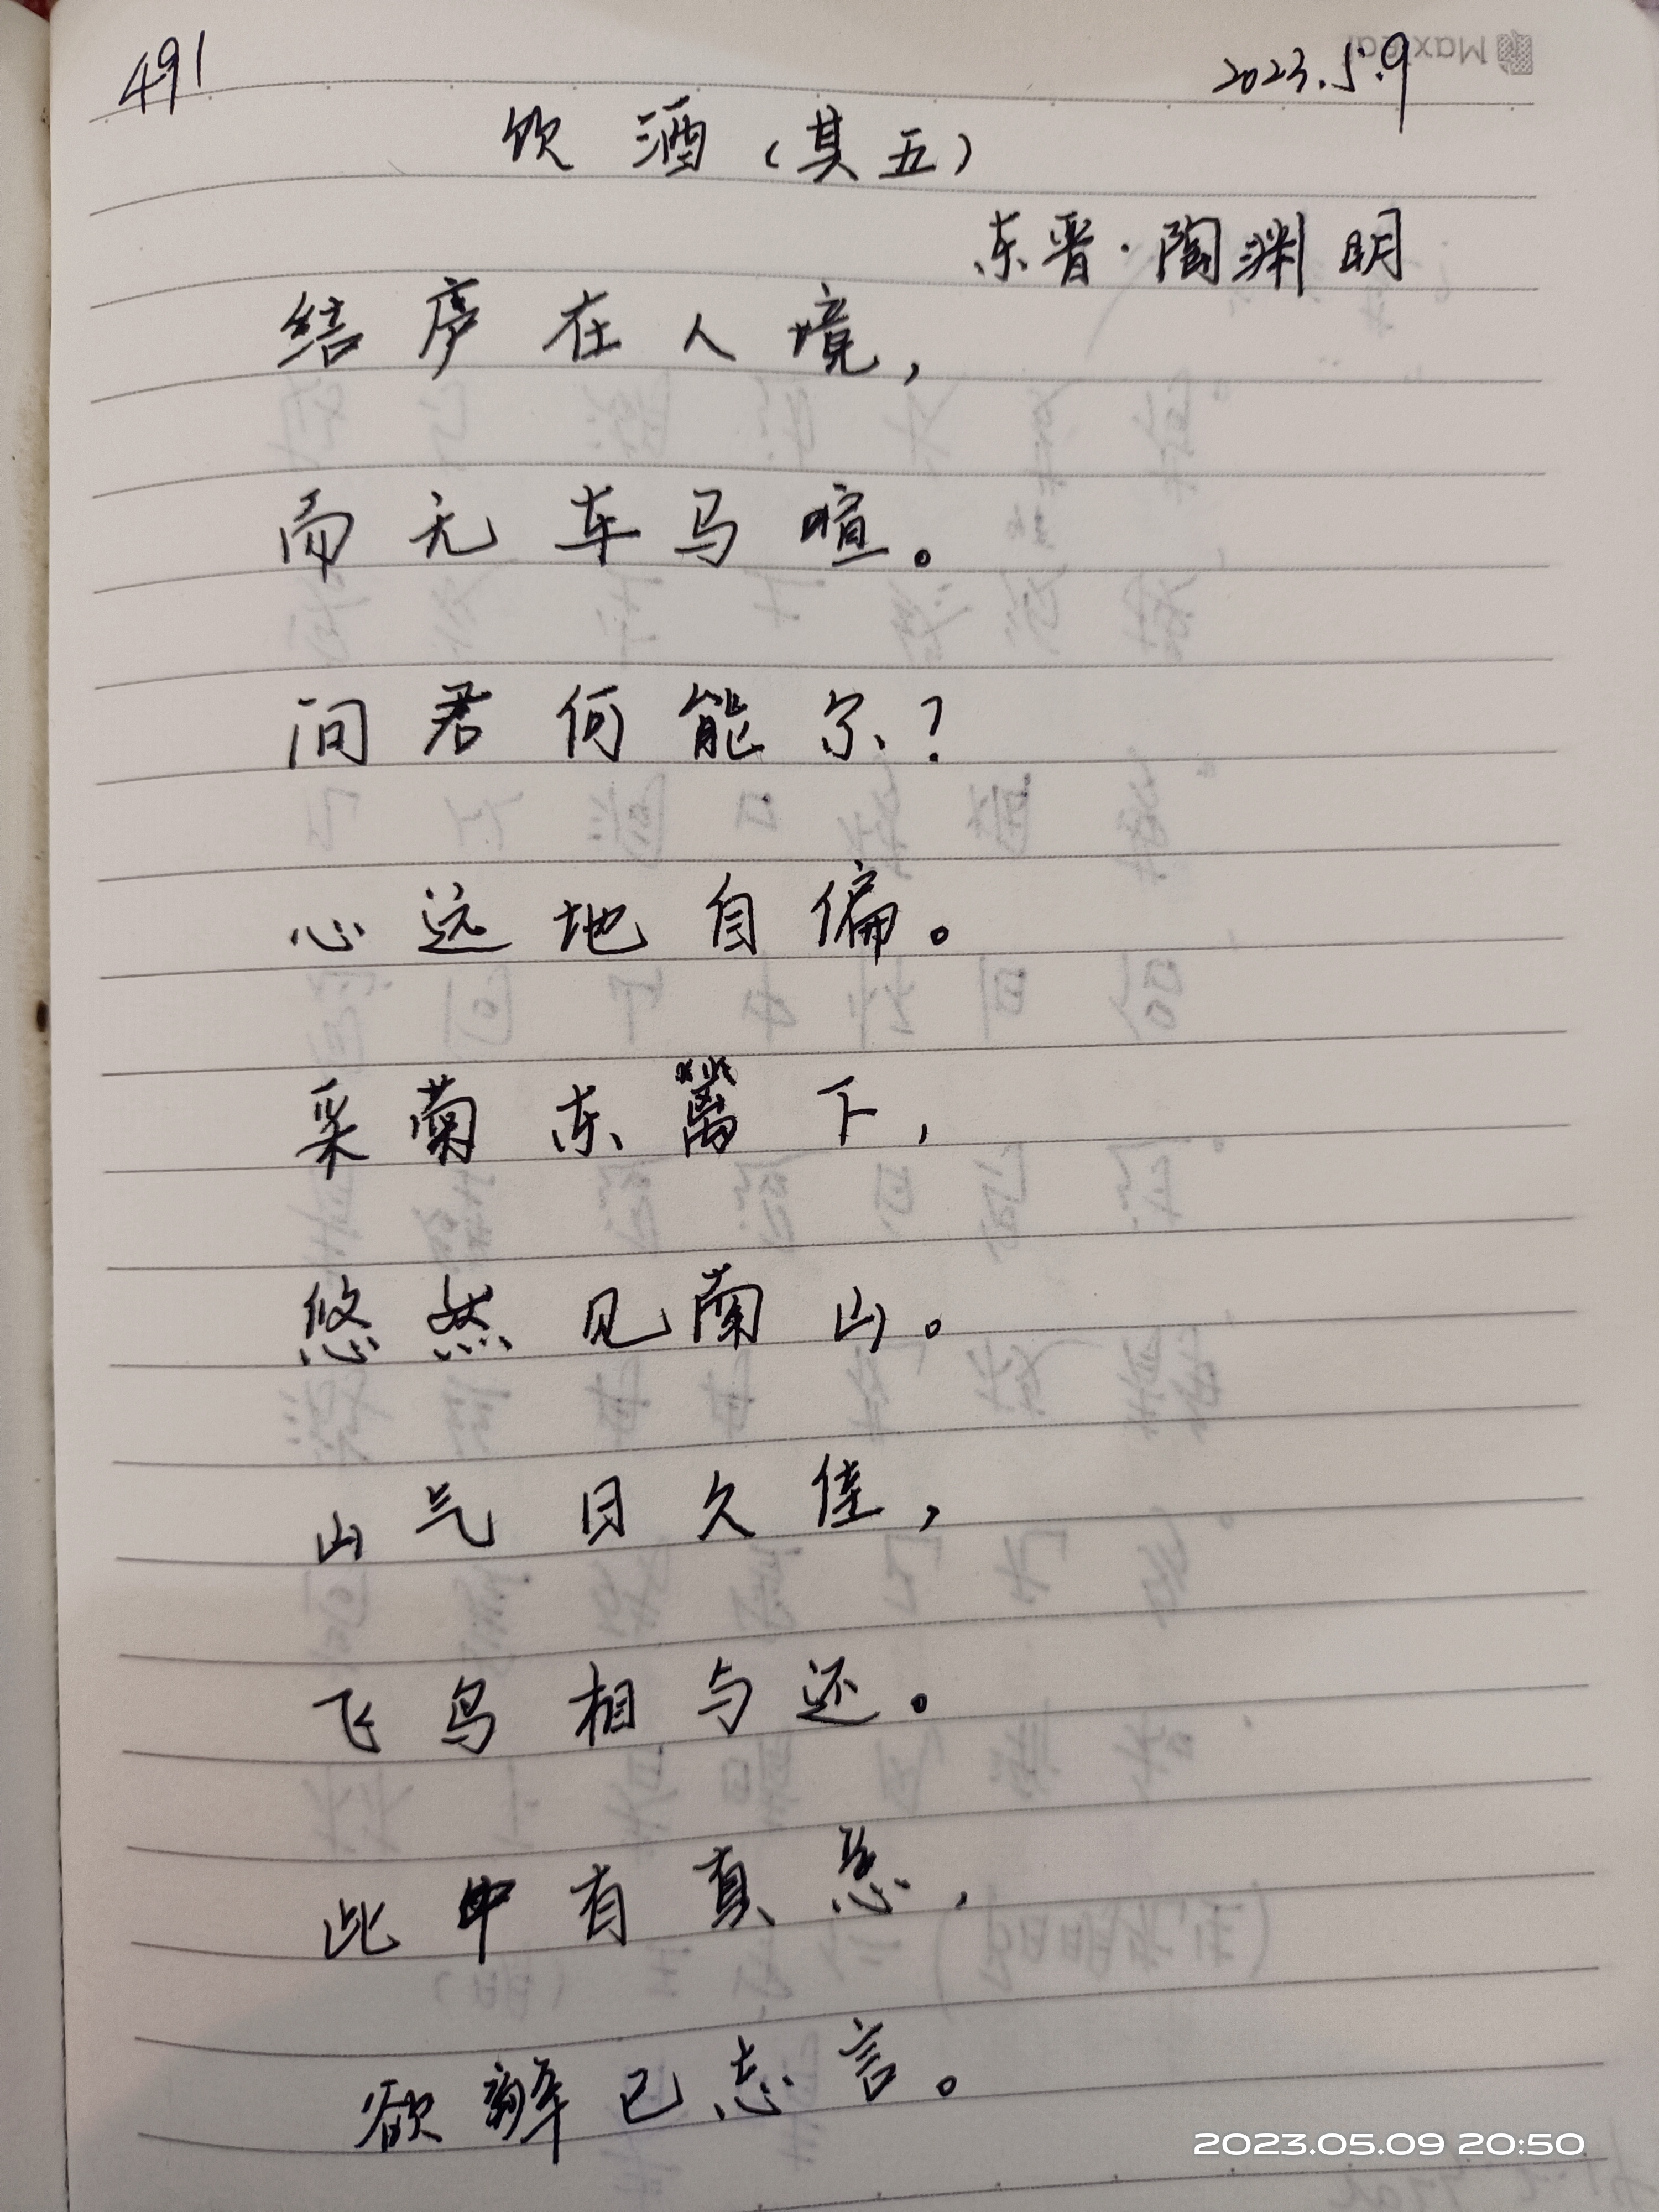 491
2023.5.9
饮酒（其五）
东晋·陶渊明
结庐在人境，
而无车马喧。
问君何能尔？
心远地自偏。
采菊东篱下，
悠然见南山。
山气日久佳，
飞鸟相与还。
此中有真意，
欲辩已忘言。
2023.05.09 20:50